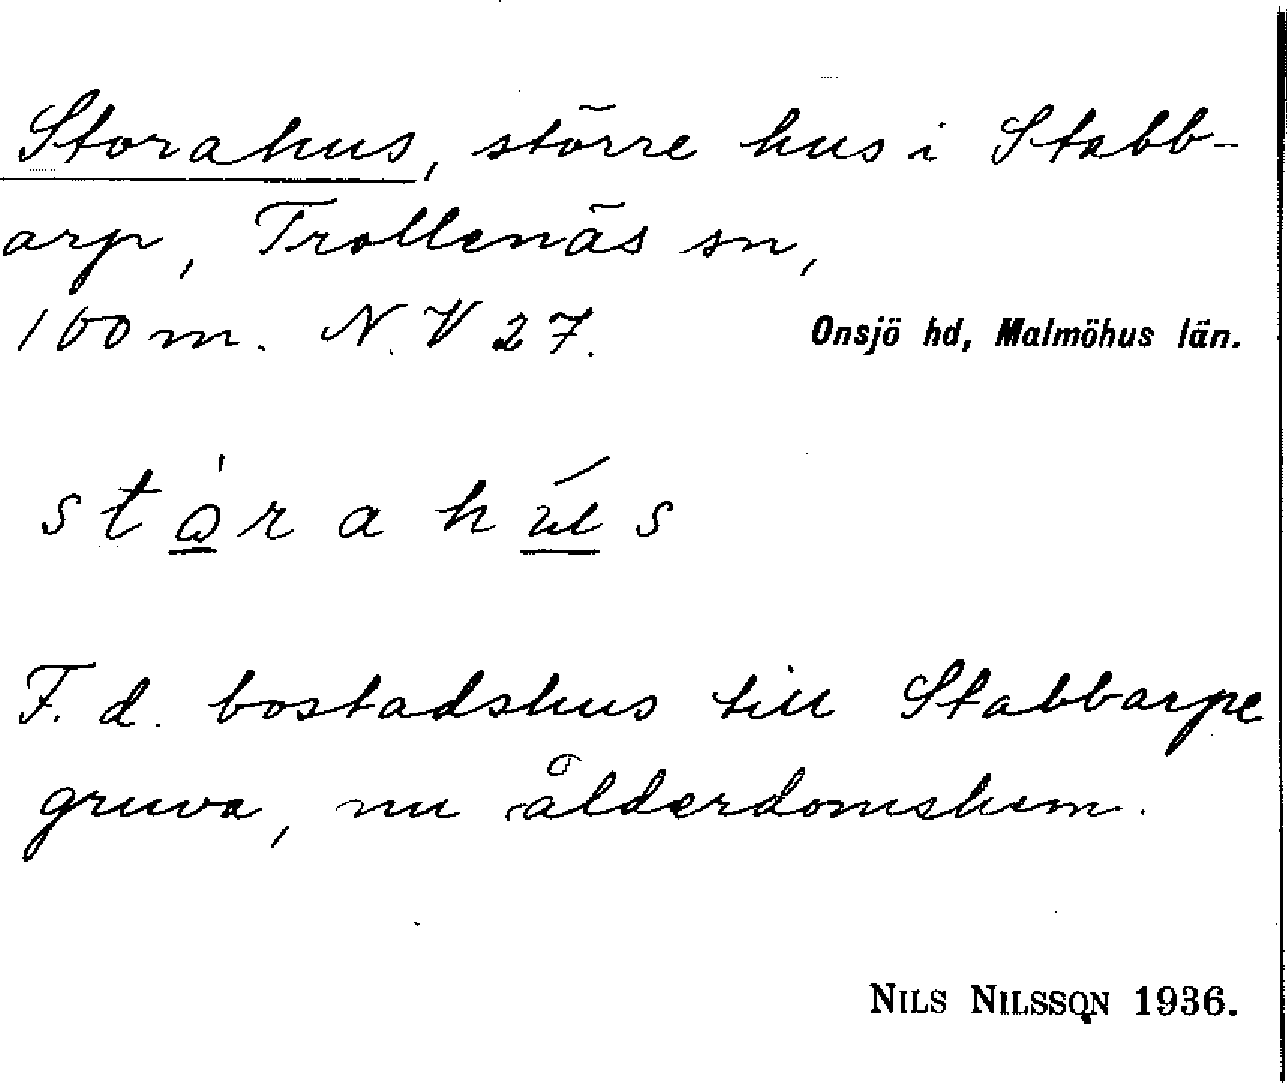 Storahus, större hus i Stabb-
arp, Trollenäs sn,
100 m. N.V 27.
Onsjö hd, Malmöhus län.
F. d. bostadshus till Stabbarps
gruva, nu ålderdomshem.
NILS NILSSON 1936.